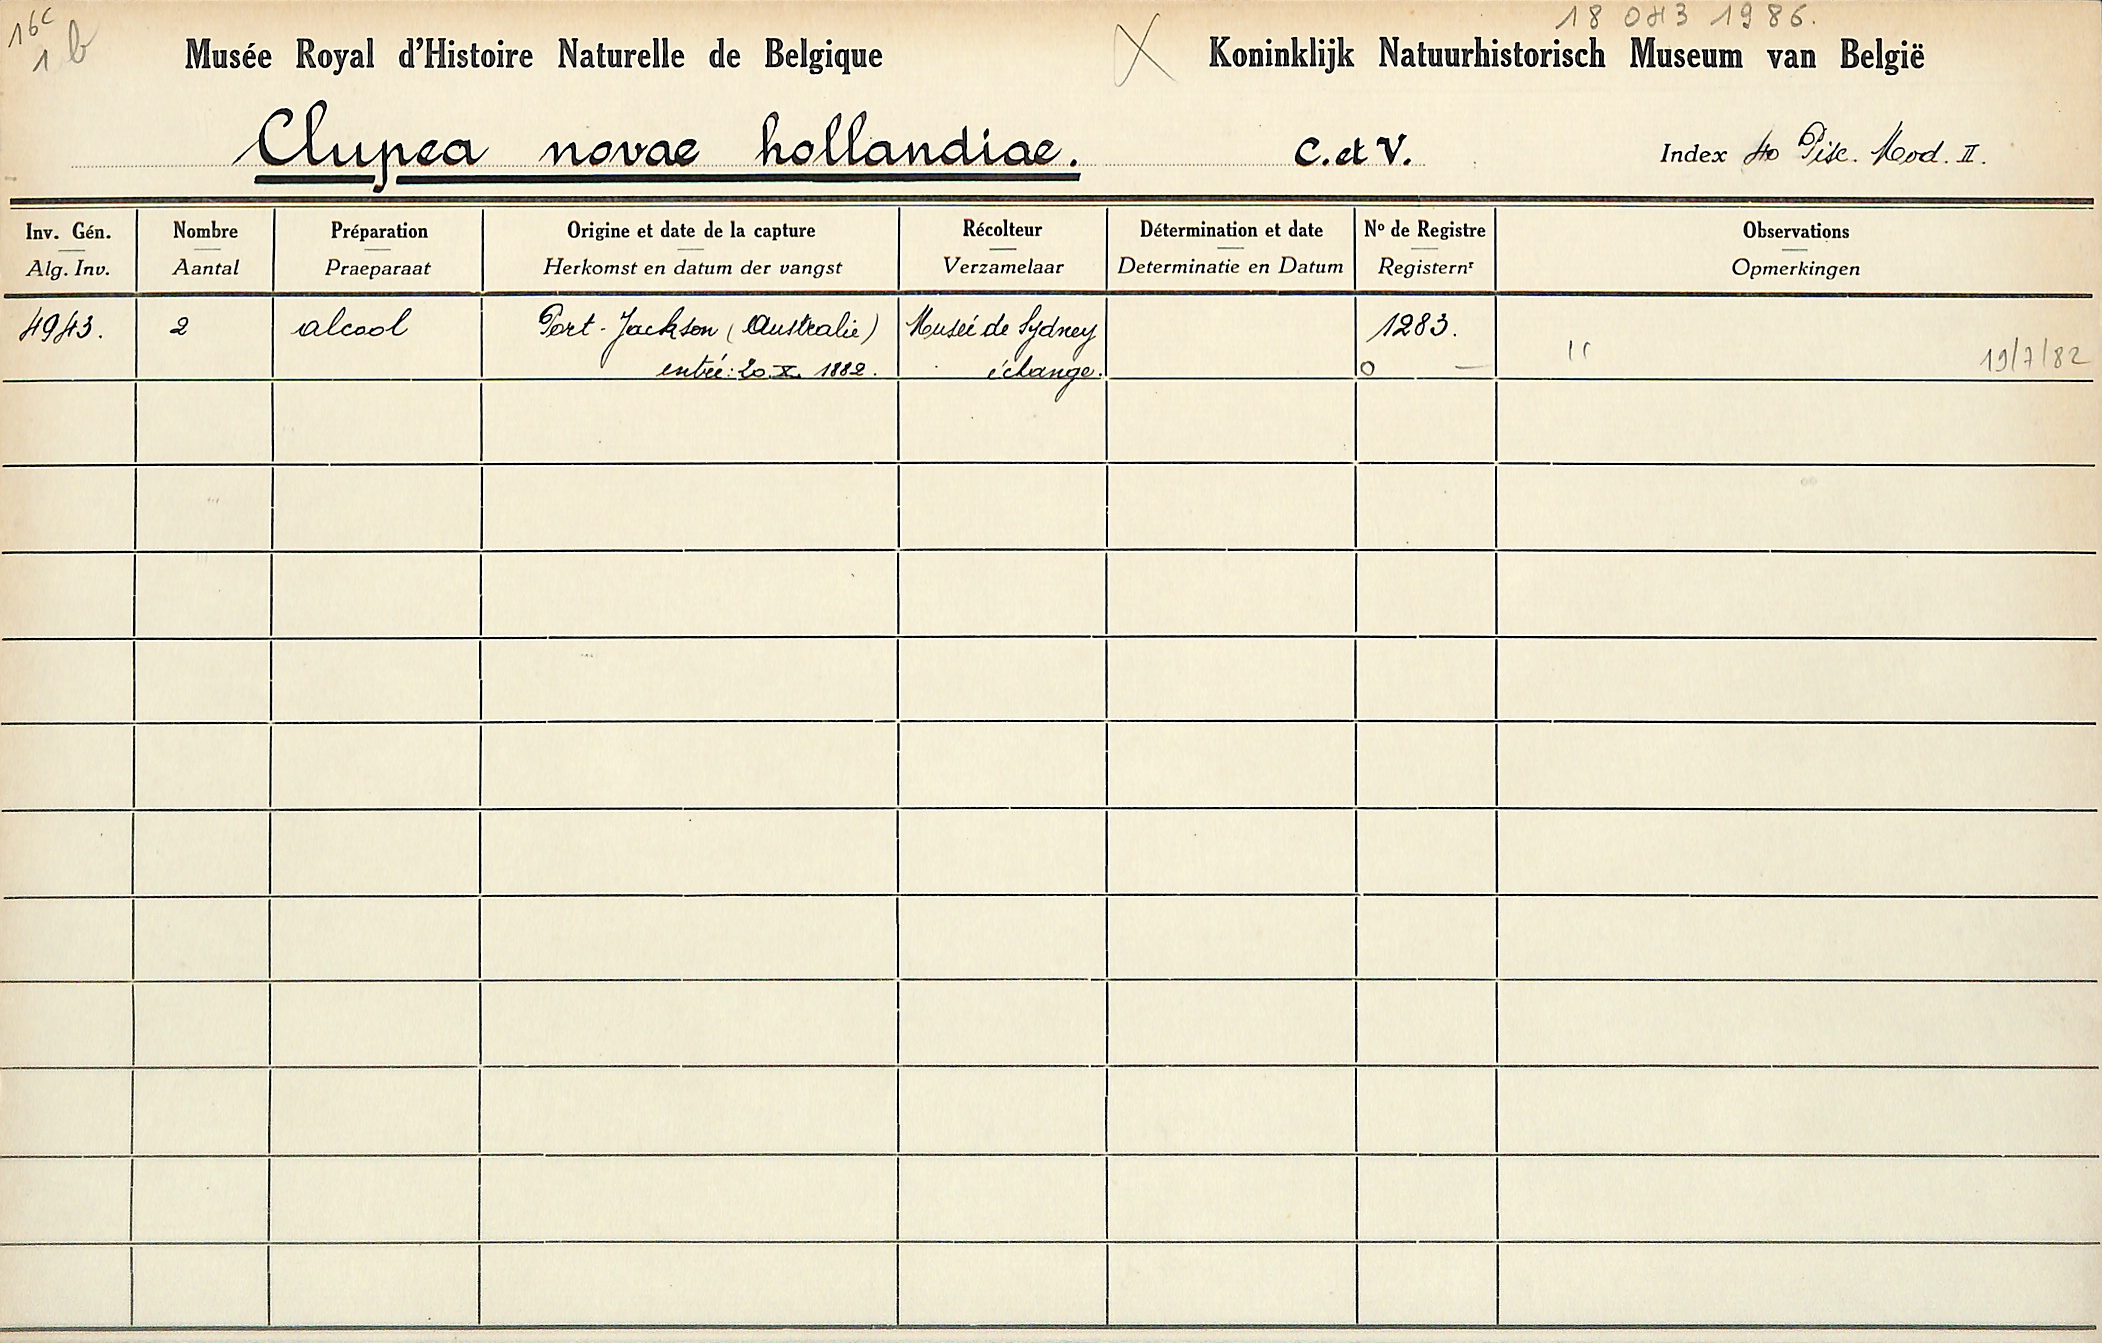 16c
1 b
18 043 1986.
Musée Royal d'Histoire Naturelle de Belgique
X
Koninklijk Natuurhistorisch Museum van België
Clupea novae hollandiae. C. et V.
Index 40 Pisc. Mod. II.
Inv. Gén. Nombre Préparation Origine et date de la capture Récolteur Détermination et date No de Registre Observations
Alg. Inv. Aantal Praeparaat Herkomst en datum der vangst Verzamelaar Determinatie en Datum Registernr Opmerkingen
4943. 2 alcool Port-Jackson (Australie) Musée de Sydney 1283.
entrée: 20.X. 1882. échange. 0 — 19/7/82